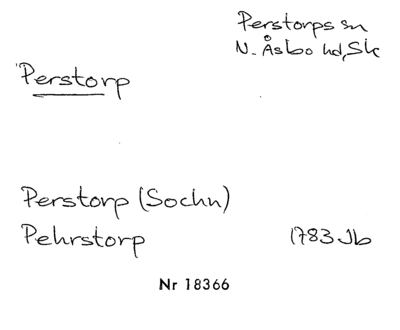 Perstorps sn
N. Åsbo hd, Sk
Perstorp
Perstorp (Sochn)
Pehrstorp 1783 Jb
Nr 18366